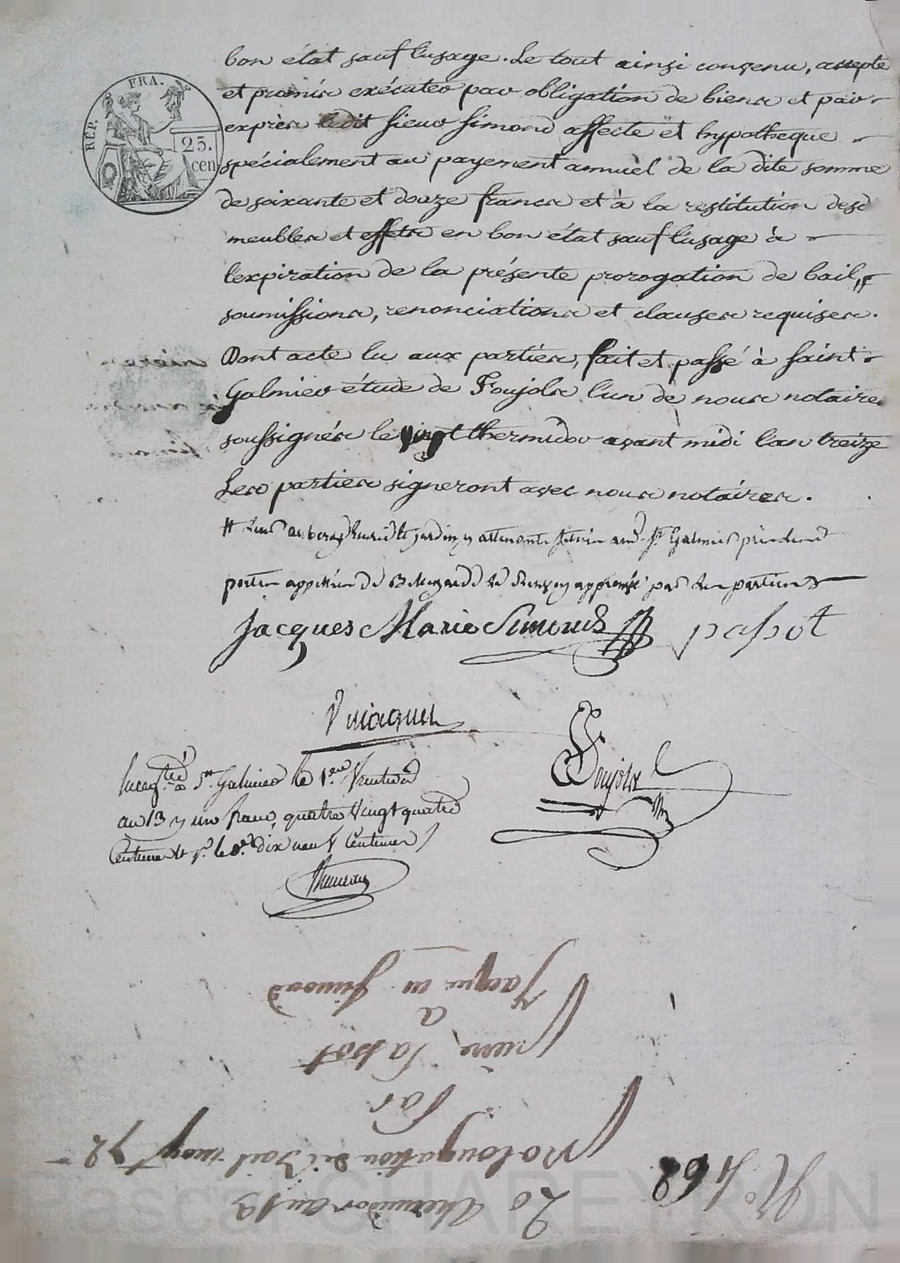 REP. FRA.
25.
cen
bon état sauf l'usage. Le tout ainsi convenu, accepté
et promis exécuter par obligation de biens et par
exprès ledit sieur Simond affecte et hypotheque
spécialement au payement annuel de la dite somme
de soixante et douze francs et à la restitution des
meubles et effets en bon état sauf l'usage à
l'expiration de la présente prorogation de bail, #
soumissions, renonciations et clauses requises.
Dont acte lu aux parties, fait et passé à saint
Galmier étude de Foujols l'un de nous notaires
soussignés le vingt thermidor avant midi l'an treize
Les parties signeront avec nous notaires.
jardin y attenant St Galmier
approuvé par les parties
Jacques Marie Simond papot
Foujols
à St Galmier le 1er
an 13 un franc, quatre vingt quatre
Centimes dix neuf Centimes
20 thermidor an 13
prolongation de Bail moyt 72
Par
pierre papot
a
Jacques m Simond
No. 468
Pascal CHAREYRON